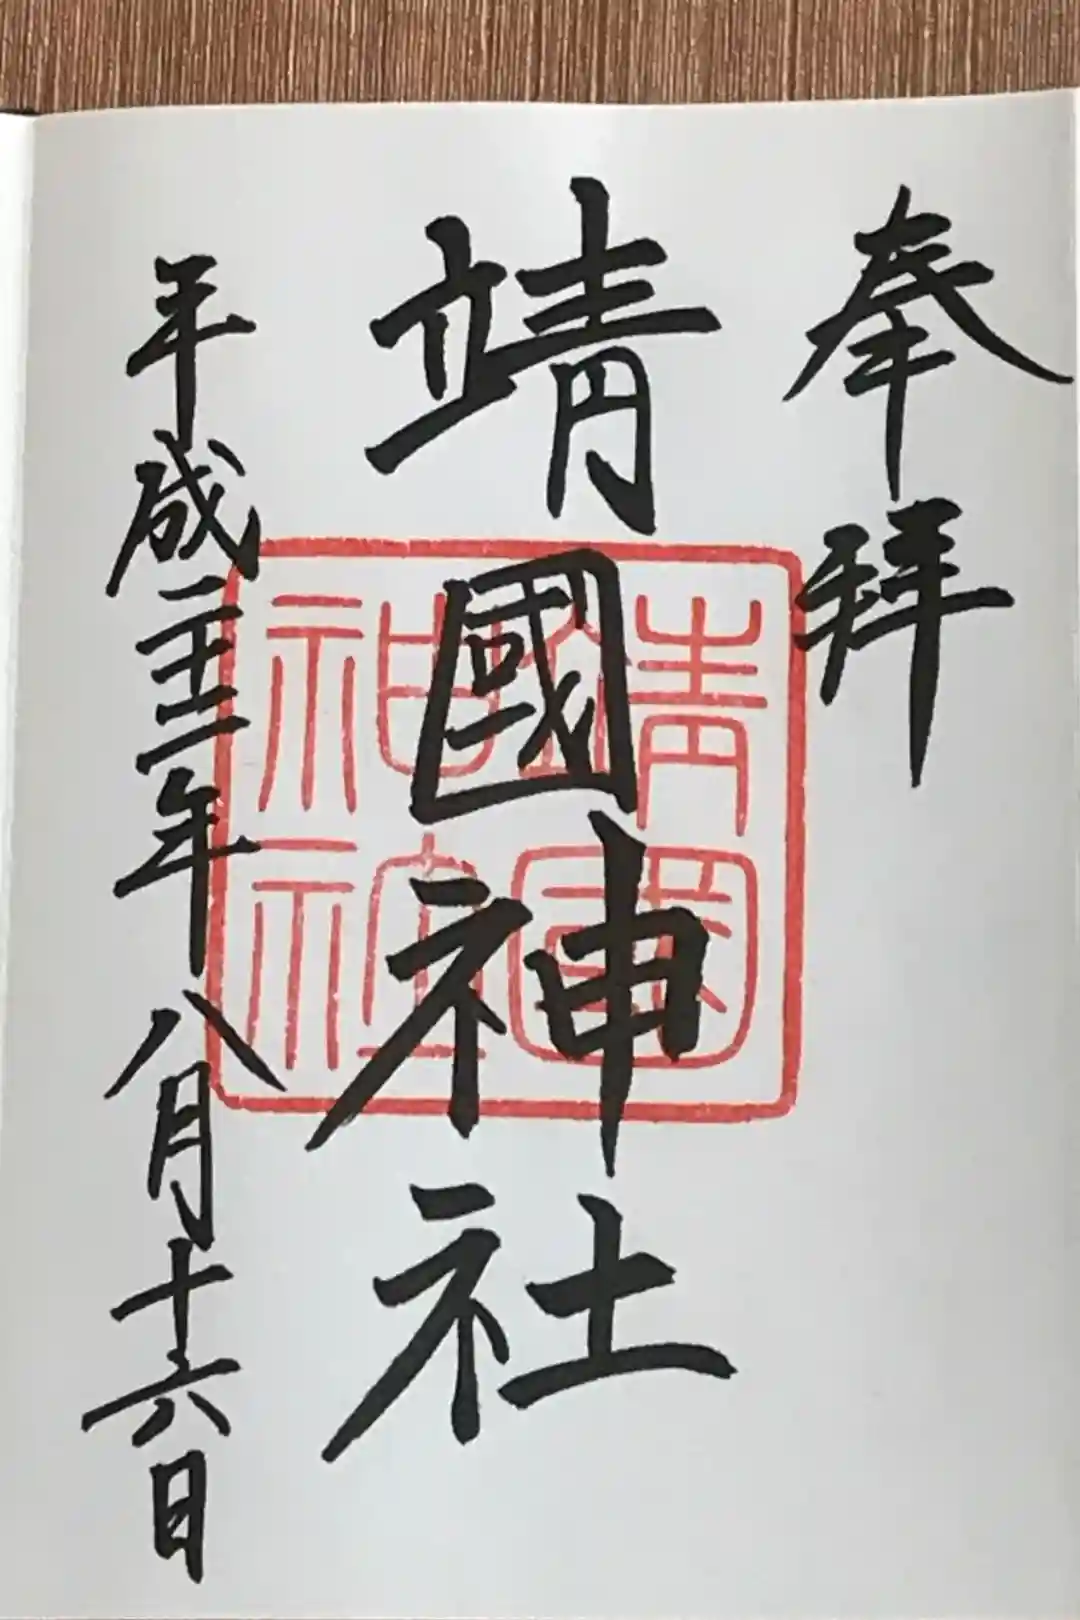 奉拝
靖國神社
平成二十三年八月十六日
靖國
神社